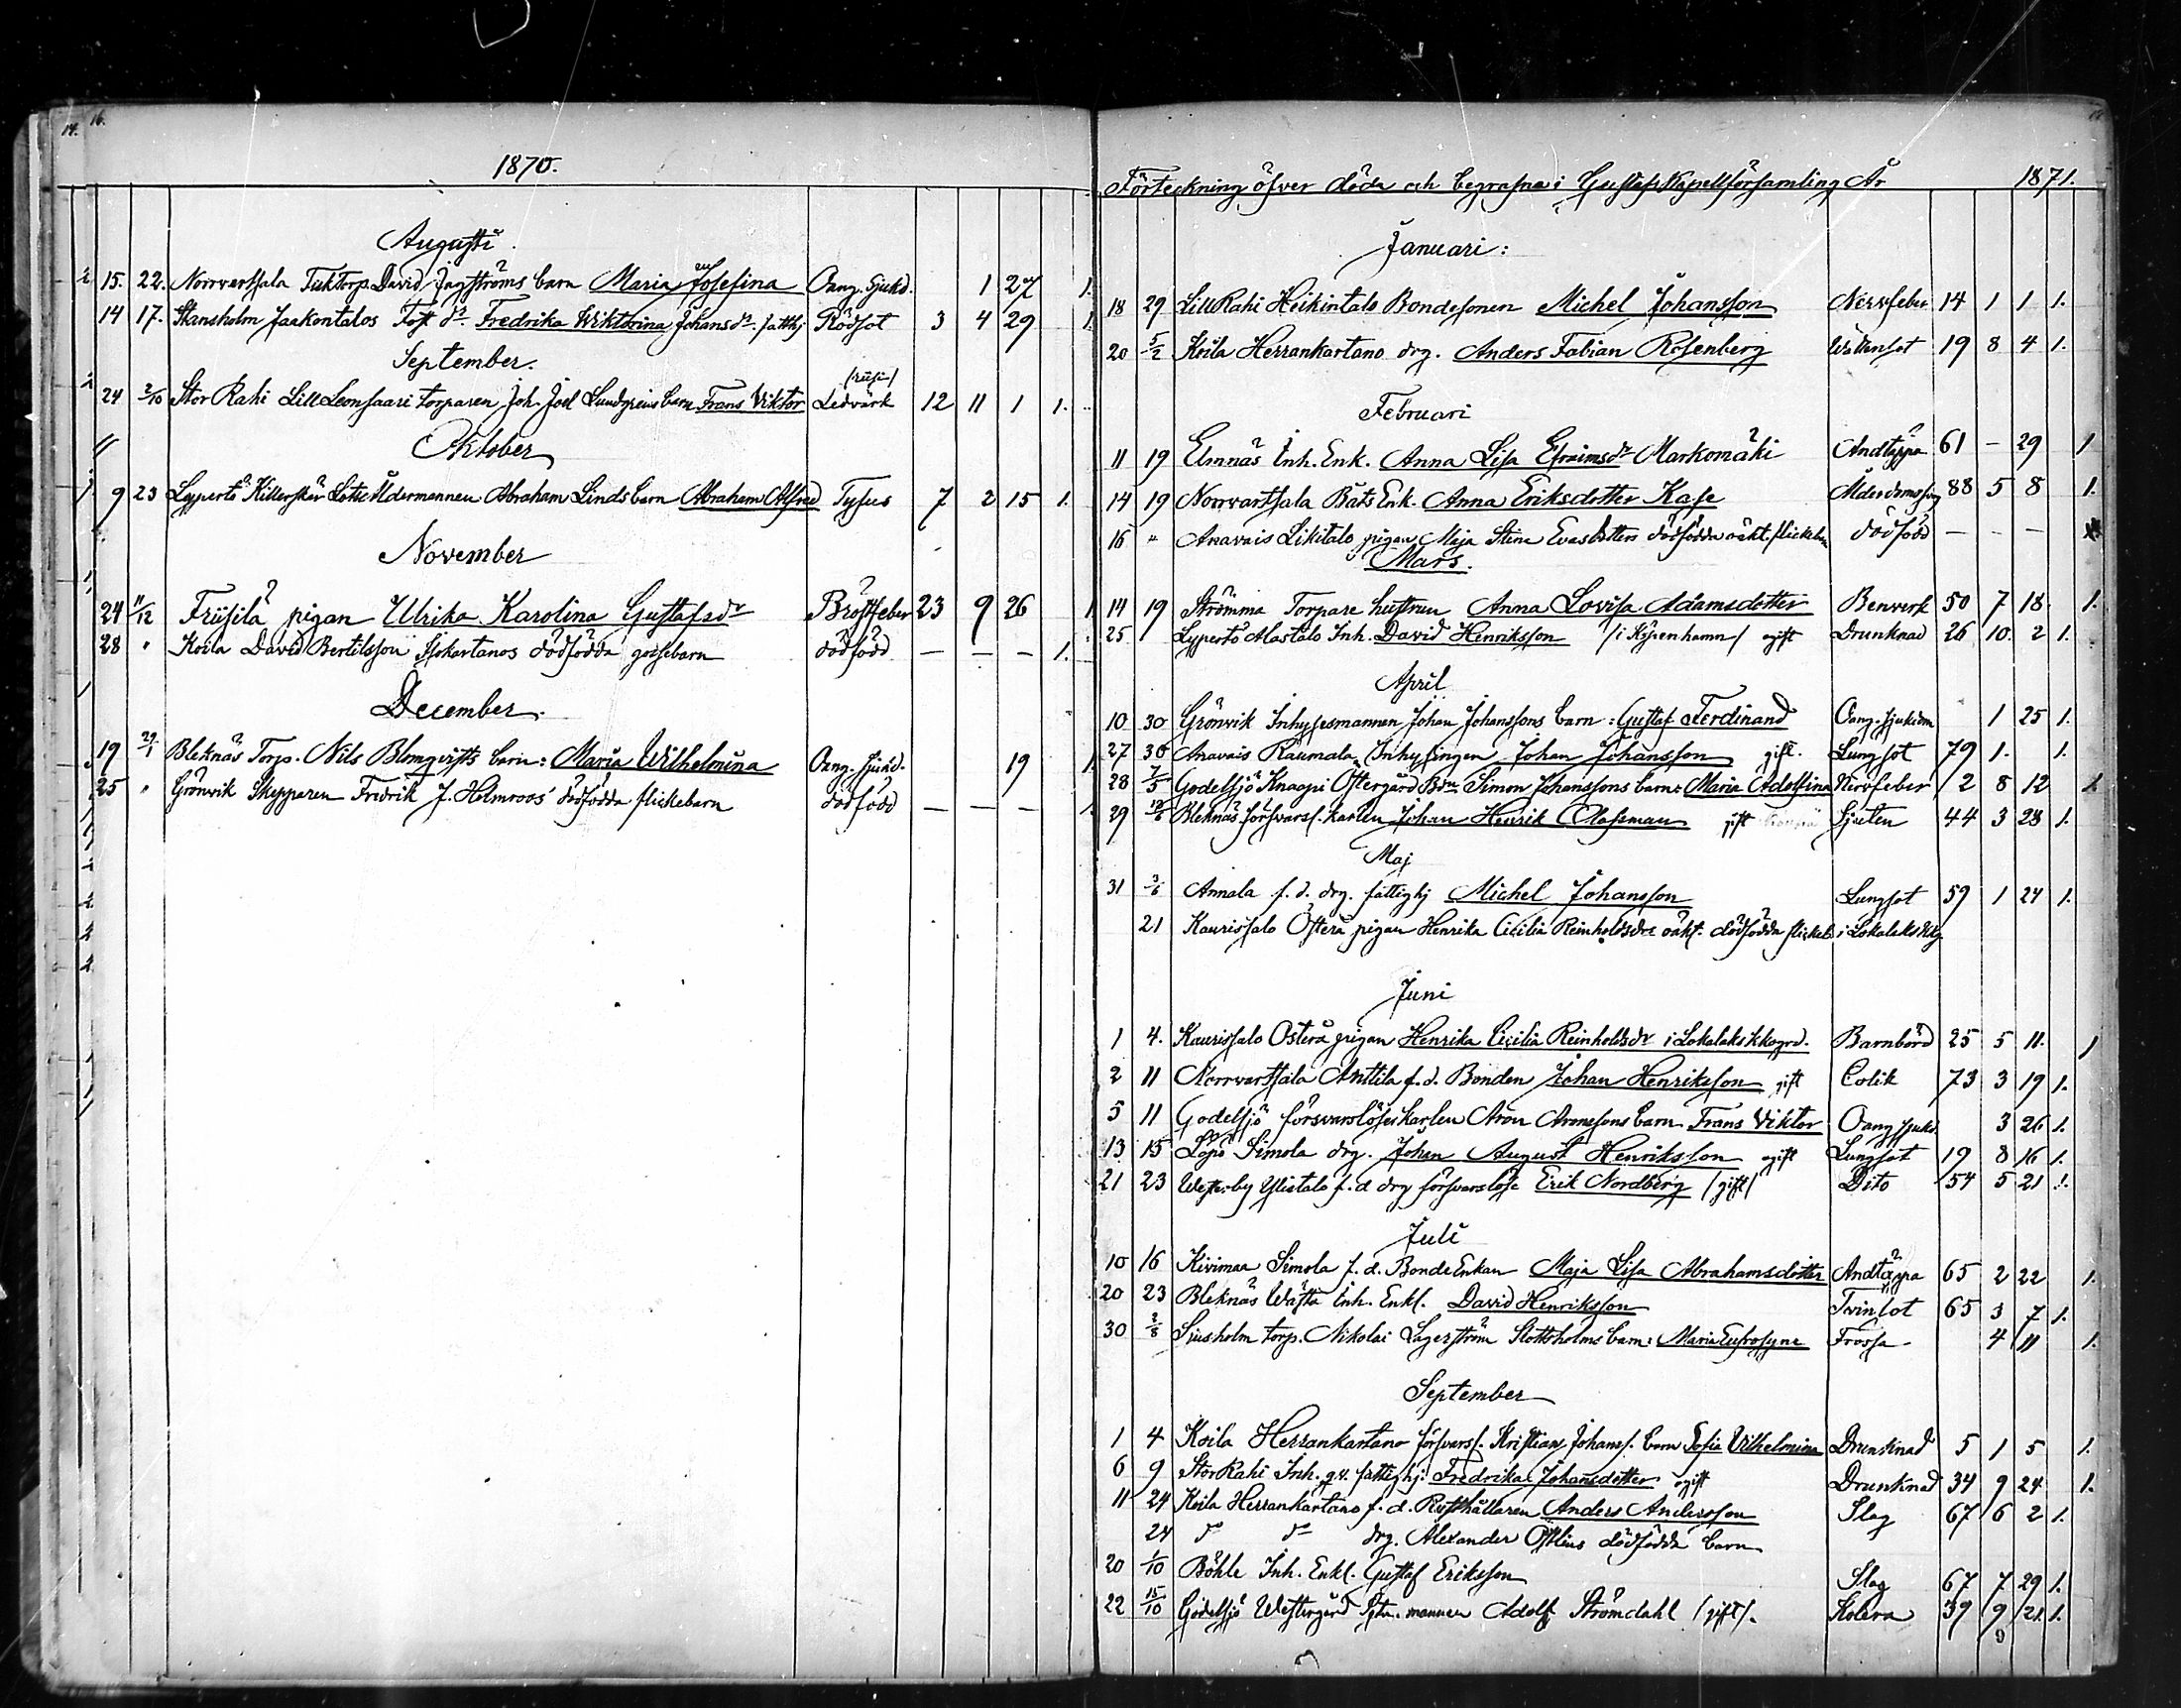 14. 16.
1870.
Augusti.
15. 22. Norrvartsala Fisktorp. David Jagströms barn Maria Josefina Oang. Sjukd. 1 27 1.
14 17. Stansholm Jaakontalos Fosterdr. Fredrika Wiktorina Johansdr. fatthj Rödsot 3 4 29 1.
September.
24 2/10 Stor Rahi Lill Leonsaari torparen Joh. Joel Lundgrens barn Frans Viktor Ledvärk 12 11 1 1.
Oktober
9 23 Lypertö Killerskär Lots Åldermannen Abraham Linds barn Abraham Alfred Tyfus 7 2 15 1.
November
24 11/12 Friisilä pigan Ulrika Karolina Gustafsdr Bröstfeber 23 9 26 1
28 " Koila David Bertilsson Isokartanos dödfödda gossebarn dödfödd — — — 1.
December.
19 29/1 Bleknäs Torp. Nils Blomqvists barn: Maria Wilhelmina Oang. sjukd. 19 1.
25 " Grönvik Skepparen Fredrik J. Holmroos' dödfödda flickebarn dödfödd — — — 1.
Förteckning öfver döda och begrafna i Gustafs Kapellförsamling År 1871.
Januari:
18 29 Lill Rahi Heikintalo Bondesonen Michel Johansson Nervfeber 14 1 1 1.
20 5/2 Koila Herrankartano drg. Anders Fabian Rosenberg Wattensot 19 8 4 1.
Februari
11 19 Elmnäs Inh. Enk. Anna Lisa Efraimsdr Markomäki Andtäppa 61 — 29 1
14 19 Norrvartsala Båts Enk. Anna Eriksdotter Kase Ålderdomssvag 88 5 8 1.
16 " Anavais Likitalo pigan Maja Stina Evasdotters dödfödda oäkt. flickebn dödfödd — — —
Mars.
14 19 Strömma Torpare hustrun Anna Lovisa Adamsdotter Benverk 50 7 18 1.
25 Lypertö Alastalo Inh. David Henriksson /i Köpenhamn/ ogift Drunknad 26 10. 2 1.
April
10 30 Grönvik Inhysesmannen Johan Johanssons barn: Gustaf Ferdinand Oang. sjukdom 1 25 1.
27 30 Anavais Raumala Inhysingen Johan Johansson gift. Lungsot 79 1. 1.
28 7/5 Godelsjö Knaapi Östergård Bdn Simon Johanssons barn: Maria Adolfina Nervfeber 2 8 12 1
29 18/6 Bleknäs försvarsl. karlen Johan Henrik Classman gift Sjöten 44 3 28 1.
Maj
31 3/6 Annala f. d. drg. fattighj Michel Johansson Lungsot 59 1 24 1.
21 Kaurissalo Österå pigan Henrika Cicilia Reinholdsdrs oäkt. dödfödda flickeb. i Lokalaks kkg
Juni
1 4. Kaurissalo Österå pigan Henrika Cicilia Reinholdsdr i Lokalaks kkogrd. Barnbörd 25 5 11. 1
2 11 Norrvartsala Anttila f. d. Bonden Johan Henriksson gift Colik 73 3 19 1.
5 11 Godelsjö försvarslöse karlen Aron Aronssons barn Frans Viktor Oang sjukd. 3 26 1.
13 15 Löpö Simola drg. Johan August Henriksson ogift Lungsot 19 8 16 1.
21 23 Westerby Ylistalo f. d drg försvarslöse Erik Nordberg /gift/ Dito 54 5 21 1.
Juli
10 16 Kivimaa Simola f. d. Bonde Enkan Maja Lisa Abrahamsdotter Andtäppa 65 2 22 1.
20 23 Bleknäs Wästä Inh. Enkl. David Henriksson Twinsot 65 3 7 1.
30 3/8 Siusholm torp. Nikolai Lagerström Slottsholms barn: Maria Eufrosyne Frossa 4 11 1.
September
1 4 Koila Herrankartano försvarsl. Kristian Johanss. barn Sofia Vilhelmina Drunknad 5 1 5 1.
6 9 Stor Rahi Inh. q.v. fattighj. Fredrika Johansdotter ogift Drunknad 34 9 24 1.
11 24 Koila Herrankartano f. d. Rusthållaren Anders Andersson Slag 67 6 2 1.
24 do do drg. Alexander Östlins dödfödda barn
20 1/10 Böhle Inh. Enkl. Gustaf Eriksson Slag 67 7 29 1.
22 15/10 Godelsjö Westergård mannen Adolf Strömdahl /gift/. Kolera 39 9 21 1.